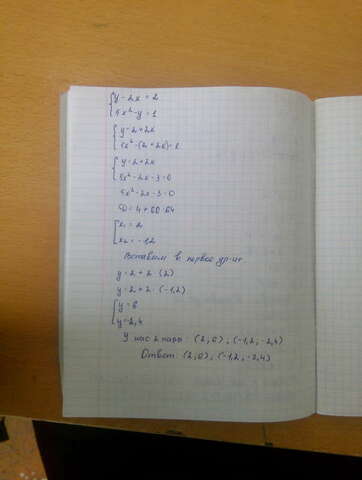 y-2x = 2
5x²-y = 1
y=2+2x
5x²-(2+2x)=1
y=2+2x
5x²-2x-3=0
5x²-2x-3=0
D=4+60=64
x₁=2
x₂=-1,2
Вставим в первое ур-ие
y=2+2·(2)
y=2+2·(-1,2)
y=6
y=-2,4
У нас 2 пары: (2;6), (-1,2; -2,4)
Ответ: (2;6), (-1,2; -2,4)